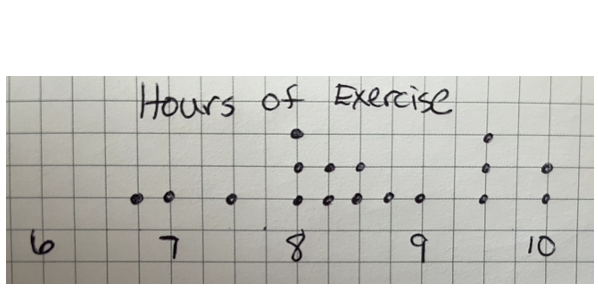 Hours of Exercise
6 7 8 9 10